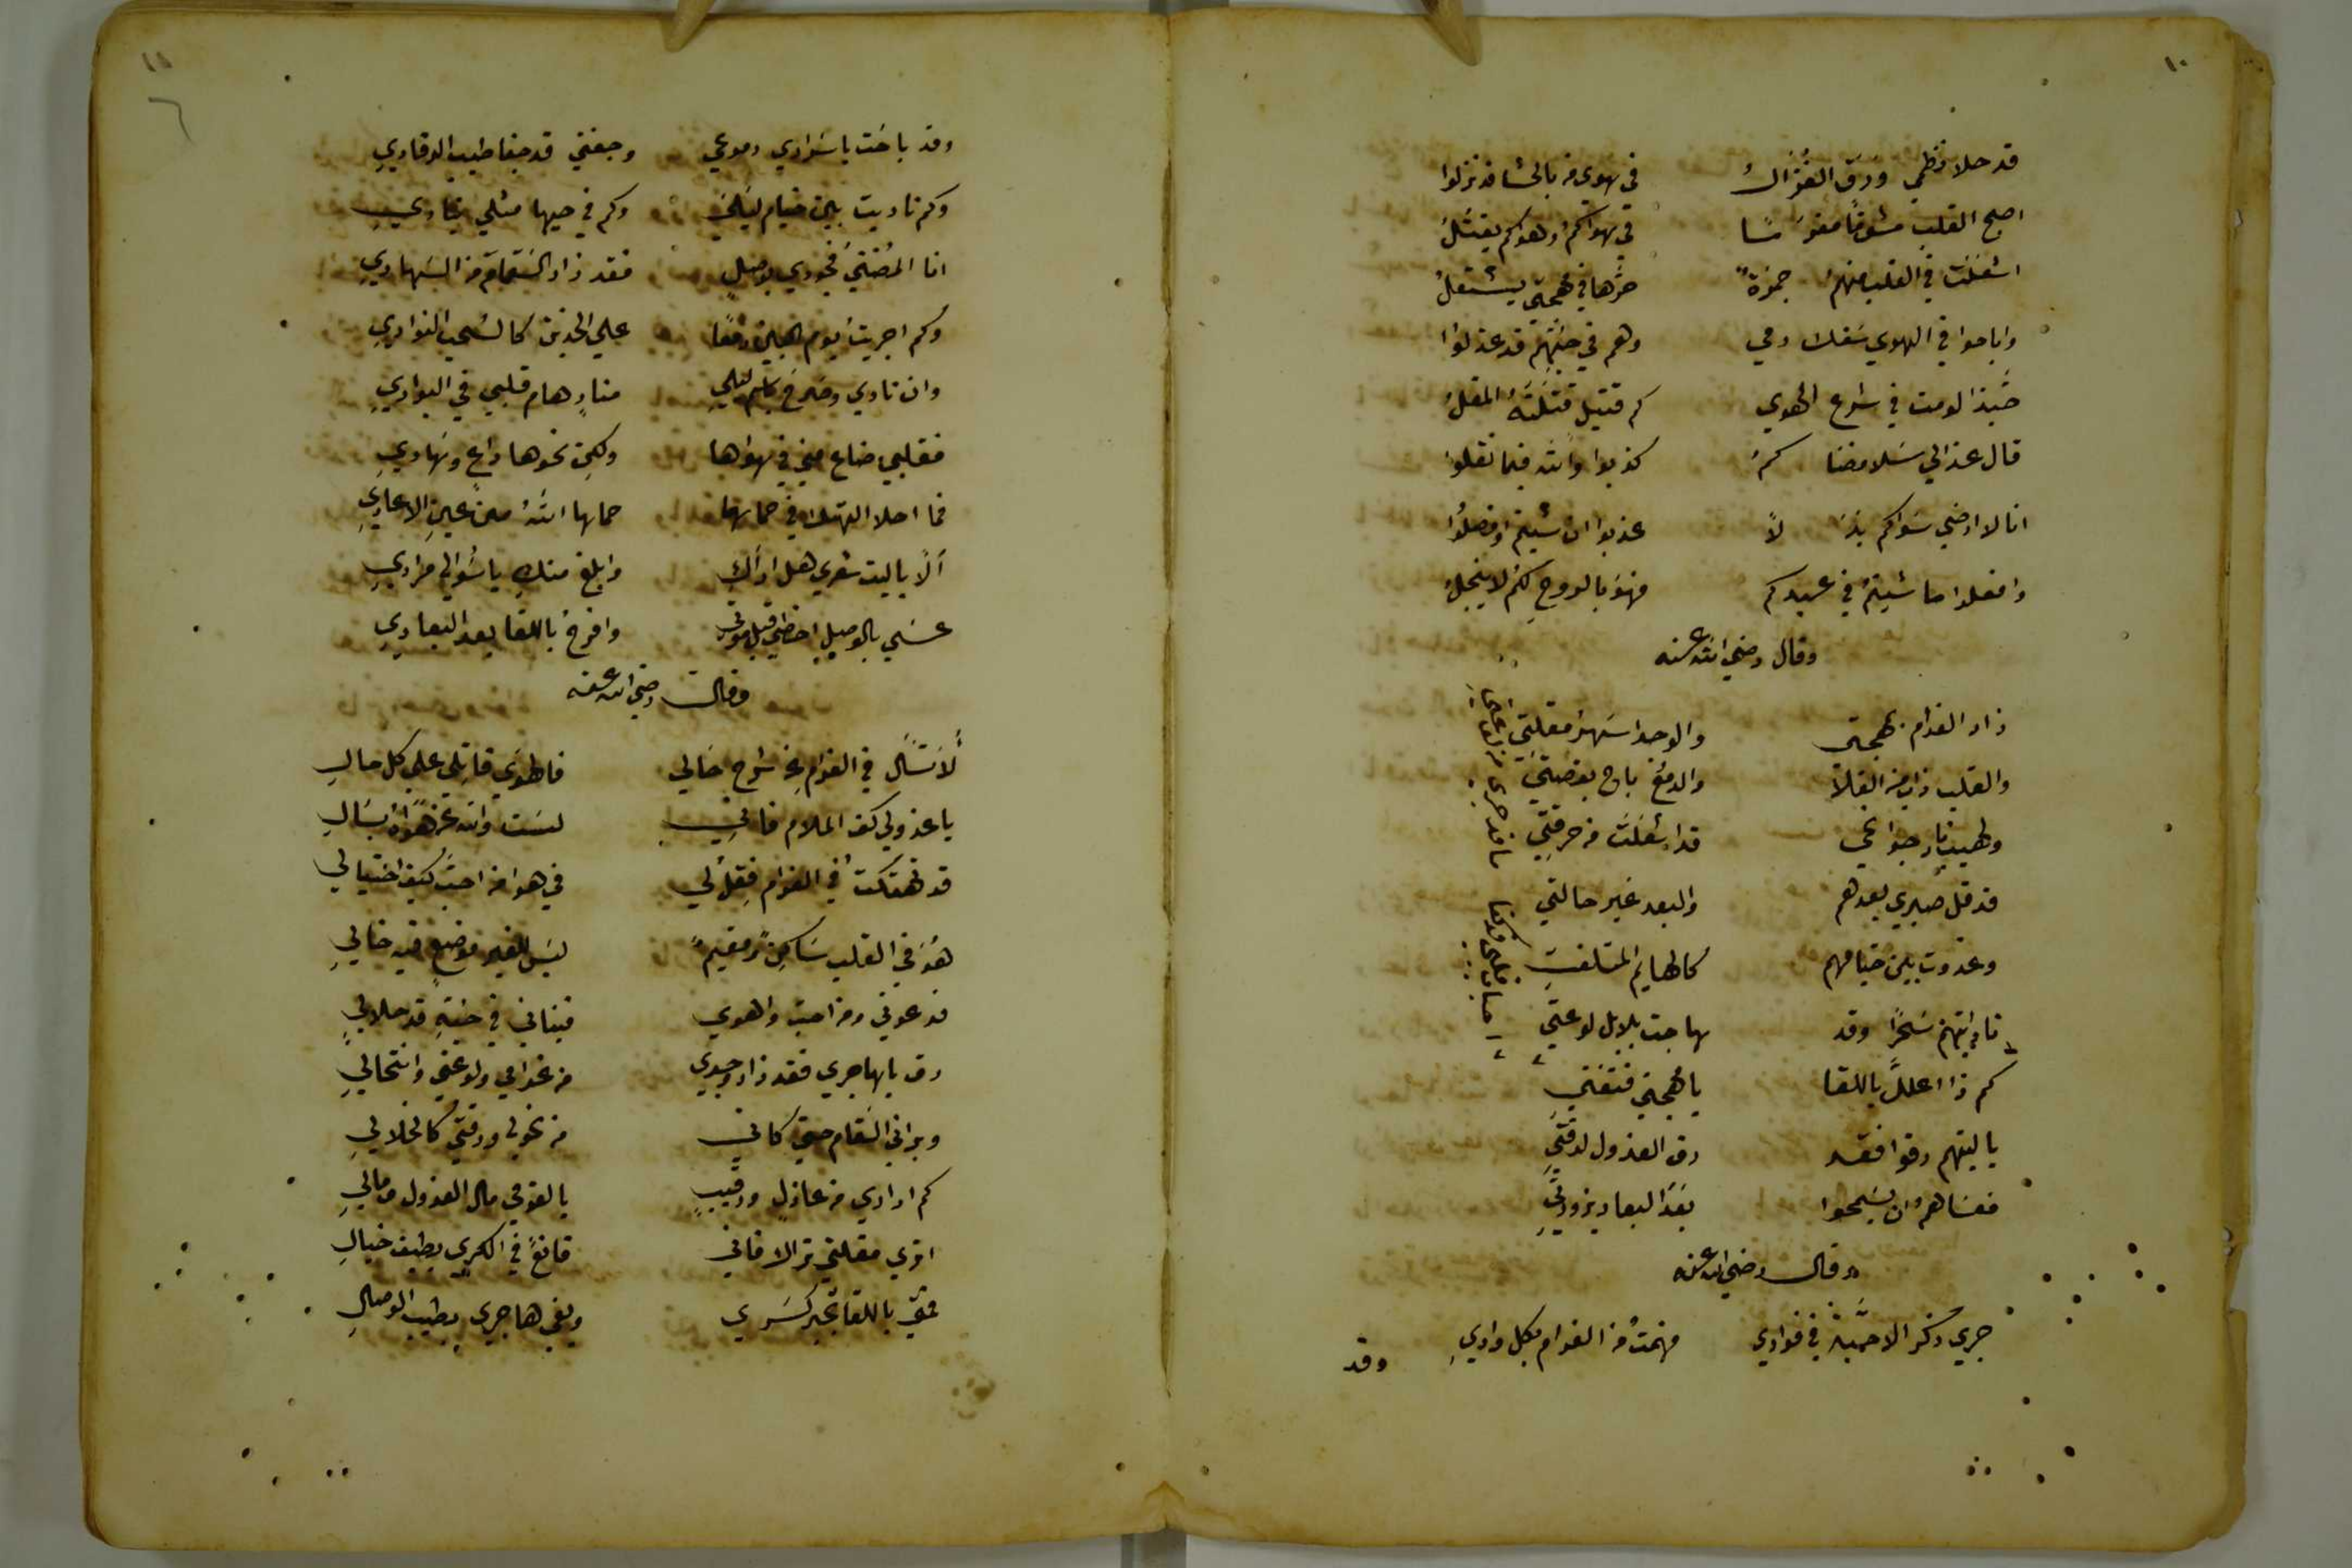 ١٠
قد حلا نظمي ورق الغزلُ في هوي من بالحشا قد نزلوا
اصبح القلب مشوقًا مغرمًا في هواكم وهواكم يقتلُ
اشغلت في القلب منهم جمرةً حرها في مهجتي يشتعلُ
واباحوا في الهوي سفك دمي وهم في حبهم قد عذلوا
حبذا لو مت في شرع الهوي كم قتيل قتلته المقلُ
قال عذالي سلا مضناكم كذبوا والله فيما نقلوا
انا لا ارضي سواكم بدلًا عذبوا ان شيتم او فصلوا
وافعلوا ما شيتم في عبدكم فهو بالروح لكم لا يبخلُ
وقال رضي الله عنه
زاد الغرام بمهجتي والوجد اسهر مقلتي
والقلب ذاب من القلا والدمع باح بقصتي
ولهيب نار جوانحي قد اشعلت من حرقتي
قد قل صبري بعدهم والبعد غير حالتي
وغدوت بين خيامهم كالهايم المتلفت
ناديتهم سحرًا وقد هاجت بلابل لوعتي
كم ذا اعلل باللقا يا مهجتي فتفتتي
يا ليتهم رقوا فقد رق العذول لرقتي
فعساهم ان يسمحوا بعد البعاد بزورتي
وقال رضي الله عنه
جري ذكر الاحبة في فوادي فهمت من الغرام بكل وادي
وقد
١١
٦
وقد باحت باسراري دموعي وجفني قد جفا طيب الرقادي
وكم ناديت بين خيام ليلي وكم في حيها مثلي ينادي
انا المضني فجودي بوصل فقد زاد السقام من السهادي
وكم اجريت يوم البين دمعًا علي الخدين كالسحب الغوادي
وان نادي وصرخ باسم ليلي منادٍ هام قلبي في البوادي
فقلبي ضاع مني في هواها ولكن نحوها داعٍ وهادي
فما احلا التهتك في حماها حماها الله من عين الاعادي
ألا يا ليت شعري هل اراك وابلغ منك يا سوالي مرادي
عسي بالوصل احظي قبل موتي وافرح باللقا بعد البعادي
وقال رضي الله عنه
لا تسأل في الغرام عن شرح حالي فالهوي قاتلي علي كل حال
يا عذولي كف الملام فاني لست والله عن هواه بسال
قد تهتكت في الغرام فقل لي في هوا من احب كيف احتيالي
هو في القلب ساكن ومقيم ليس للغير موضع فيه خالي
فدعوني ومن احب والهوي فيناني في حبه قد حلالي
رق يا هاجري فقد زاد وجدي من غرامي ولوعتي وانتحالي
وبراني السقام حتي كاني من نحولي ورقتي كالخلالي
كم اداري من عاذل ورقيب يا لقومي مال العذول ومالي
اتري مقلتي تراك فاني قانع في الكري بطيف خيال
فمتي باللقا تجبر كسري ويفي هاجري بطيب الوصال